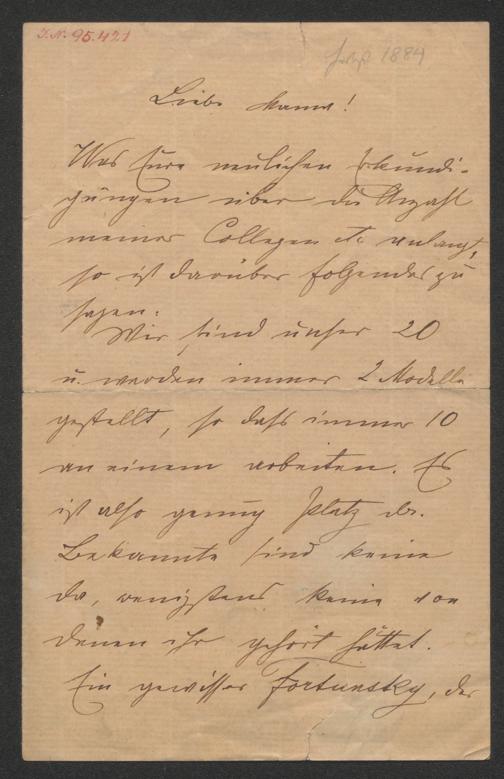 I.N. 95.421
Herbst 1884
Liebe Mama!
Was Eure neulichen Erkundi-
gungen über die Anzahl
meiner Collegen etc anlangt,
so ist darüber folgendes zu
sagen:
Wir sind unser 20
u. werden immer 2 Modelle
gestellt, so daß immer 10
an einem arbeiten. Es
ist also genug Platz da.
Bekannte sind keine
da, wenigstens keine von
denen ihr gehört hättet.
Ein gewisser Fortunsky, der